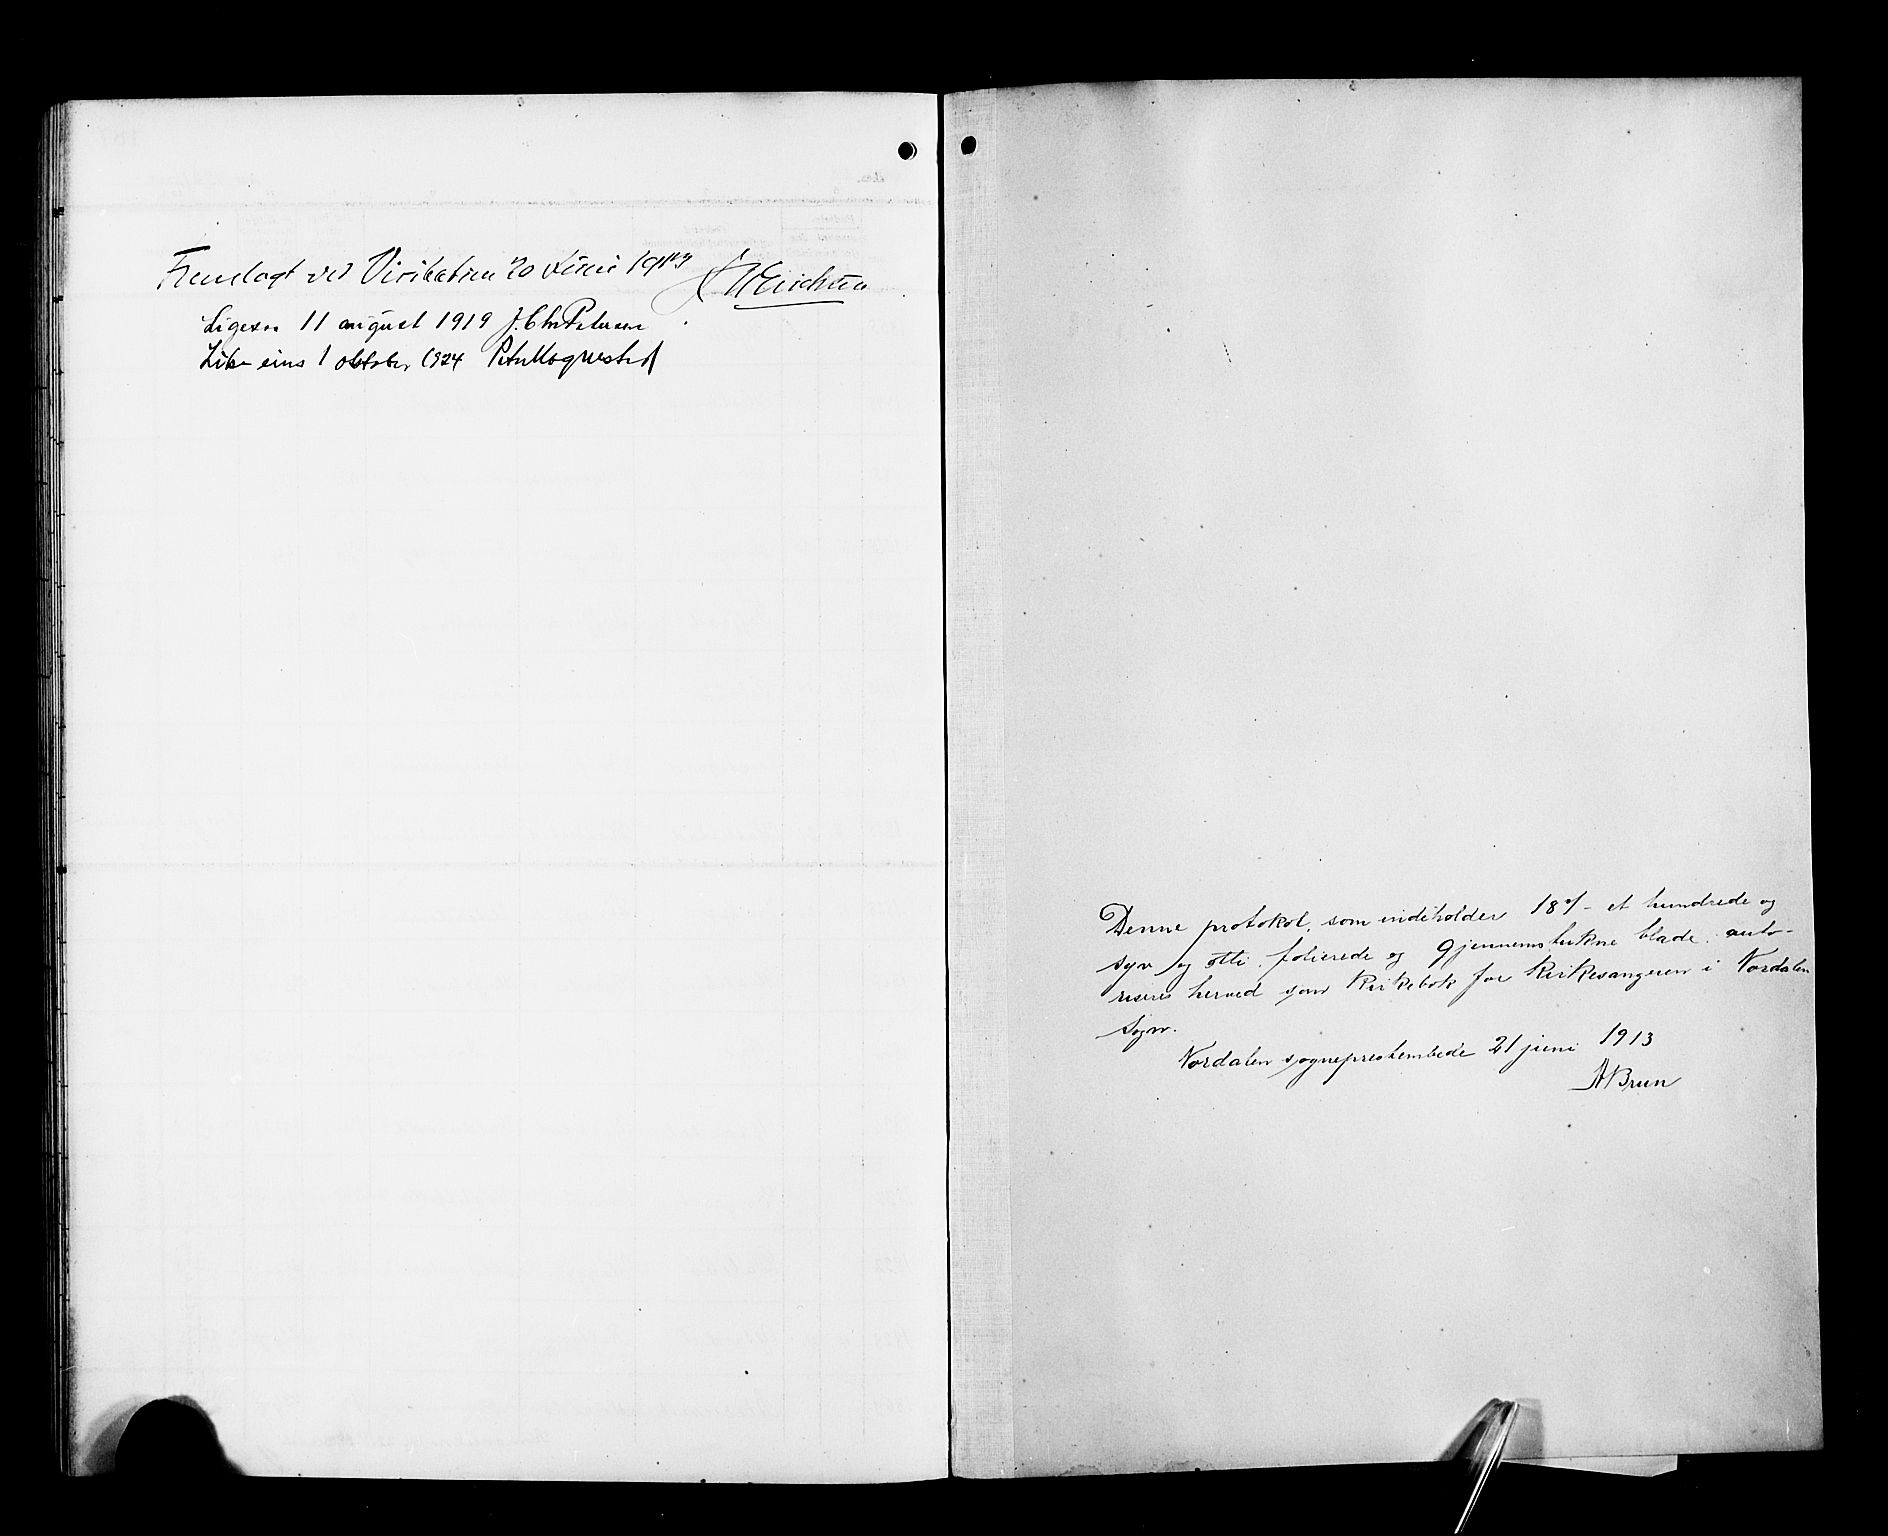 Fremlagt ved Visitatsen 20 Juni 1913 Erichsen
Ligesaa 11 august 1919 J. Chr Petersen
Like eins 1 oktober 1924 Peter Hognestad
Denne protokol, som indeholder 187 - et hundrede og
syv og otti, folierede og gjennemstukne blade, auto-
riseres herved som kirkebok for kirkesangeren i Nordalen
sogn.
Nordalen sogneprestembede 21 juni 1913
A Brun